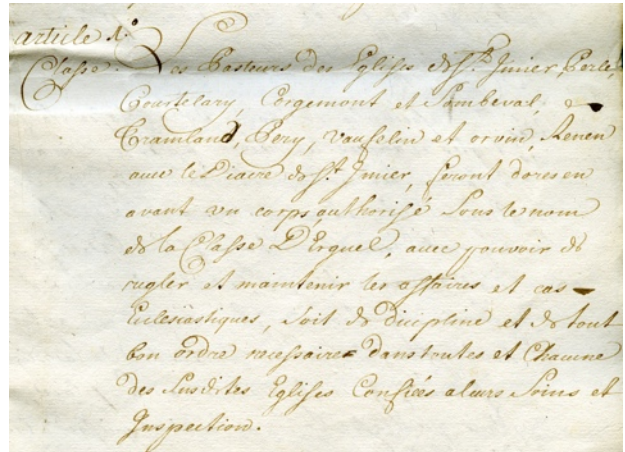 article 1.º
Classe. Les Pasteurs des Eglises de St. Jmier, Perle,
Courtelary, Corgemont et Sombeval, &
Tramland, Pery, Vauffelin et orvin, Renen
avec le Diacre de St. Jmier, feront dores en
avant un corps authorisé sous le nom
de la Classe D'Erguel, avec pouvoir de
regler et maintenir les affaires et cas
Eclesiastiques, soit de dicipline et de tout
bon ordre necessaire dans toutes et Chacune
des susdites Eglises Confiées a leurs soins et
Jnspection.